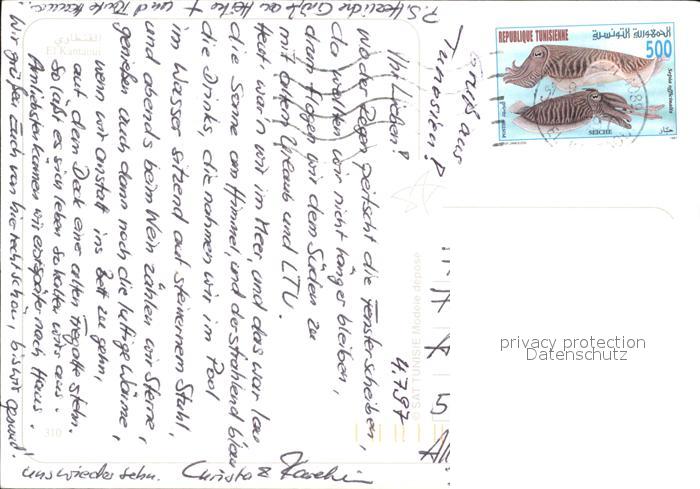 Gruß aus
Tunesien!
Ihr Lieben!
wo der Regen pertscht die Fensterscheiben,
da wollten wir nicht länger bleiben,
drum flogen wir dem Süden zu
mit alten Urlaub und LTU.
Heut warn wir im Meer, und das war lau
die Sonne am Himmel, und der strahlend blau
die Drinks, die nehmen wir im Pool
im Wasser sitzend auf steinernem Stuhl,
und abends beim Wein zählen wir Sterne,
genießen auch dann noch die luftige Wärme,
wenn wir anstatt ins Bett zu gehn,
auf dem Deck einer alten Fregatte stehn.
So läßt es sich leben so halten wir's aus.
Am liebsten kämen wir erst später nach Haus.
wir grüßen Euch von hier recht schön, bis wir gesund
uns wieder sehn. Christa &
P.S. Herzliche Grüße an
4.7.97
REPUBLIQUE TUNISIENNE
الجمهورية التونسية
500
Sepia officinalis
SEICHE
القنطاوي
El Kantaoui
310
© SAT TUNISIE Modèle déposé
privacy protection
Datenschutz